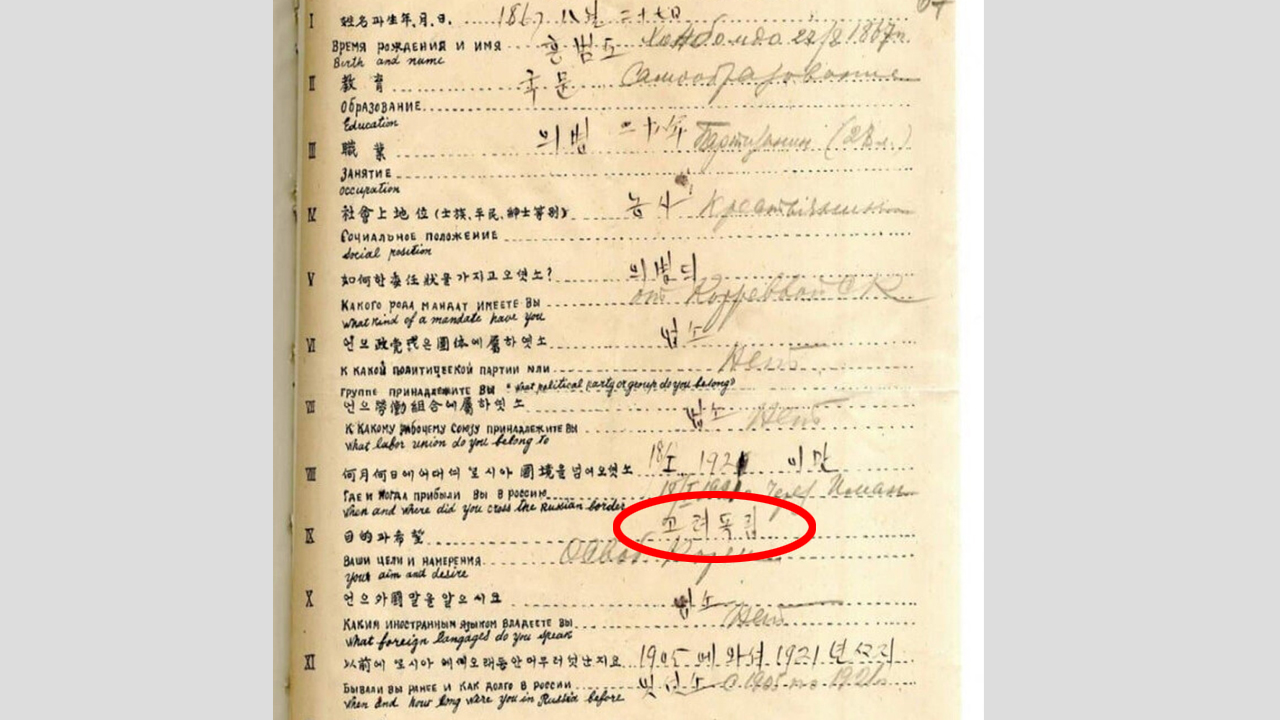 I 姓名과生年、月、日. 1867 八月 二十七日
ВРЕМЯ РОЖДЕНИЯ И ИМЯ 홍범도 27/8 1867
Birth and name
II 教育 국문 Самообразование
ОБРАЗОВАНИЕ
Education
III 職業 의병 партизанин
ЗАНЯТИЕ
occupation
IV 社會上地位(士族、平民、紳士等別) 농사
СОЦИАЛЬНОЕ ПОЛОЖЕНИЕ
social position
V 如何한委任狀을가지고오엿소? 의병
КАКОГО РОДА МАНДАТ ИМЕЕТЕ ВЫ от
what kind of a mandate have you
VI 언으政党或은團体에屬하엿소 업소
К КАКОЙ ПОЛИТИЧЕСКОЙ ПАРТИИ ИЛИ Нет
ГРУППЕ ПРИНАДЛЕЖИТЕ ВЫ "what political party or group do you belong"
VII 언으勞働組合에屬하엿소 업소 Нет
К КАКОМУ РАБОЧЕМУ СОЮЗУ ПРИНАДЛЕЖИТЕ ВЫ
what labor union do you belong to
VIII 何月何日에어대셔 로시아 國境을넘어오엿소 1921 이만
ГДЕ И КОГДА ПРИБЫЛИ ВЫ В РОССИЮ Иман
when and where did you cross the Russian border
IX 目的과希望 고려독립
ВАШИ ЦЕЛИ И НАМЕРЕНИЯ Освоб. Кореи
your aim and desire
X 언으外國말을알으시요 업소
КАКИМ ИНОСТРАННЫМ ЯЗЫКОМ ВЛАДЕЕТЕ ВЫ Нет
what foreign langages do you speak
XI 以前에 로시아 에에오래동안머무러잇난지요 1905 에 와셔 1921 년
БЫВАЛИ ВЫ РАНЕЕ И КАК ДОЛГО В РОССИИ с 1905 по 1921
when and how long were you in Russia before